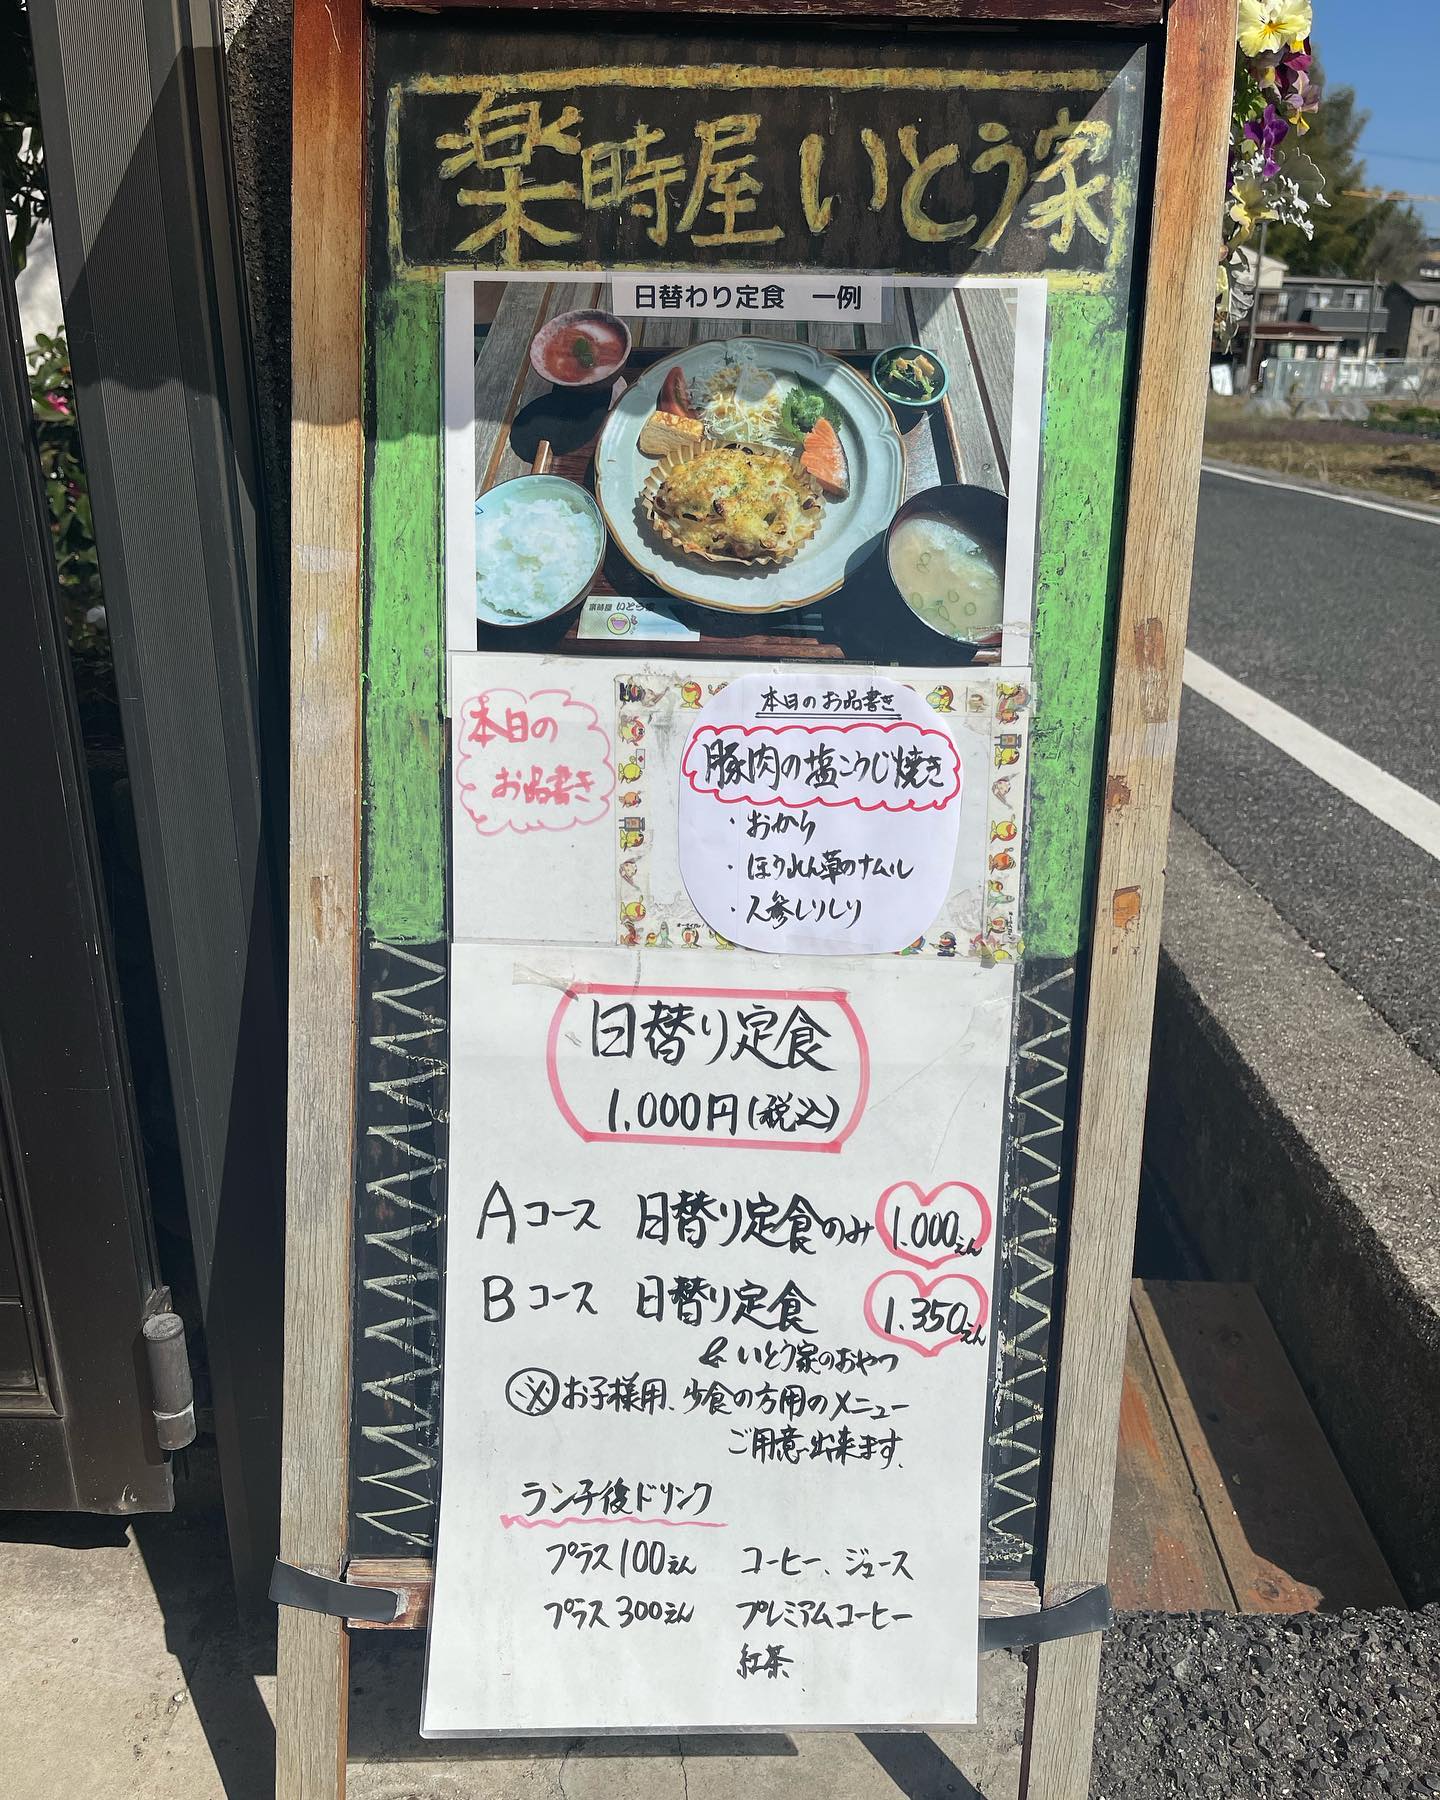 楽時屋 いとう家
日替わり定食 一例
楽時屋 いとう家
本日の
お品書き
本日のお品書き
豚肉の塩こうじ焼き
・おから
・ほうれん草のナムル
・人参しりしり
日替り定食
1.000円(税込)
Aコース 日替り定食のみ 1.000えん
Bコース 日替り定食 1.350えん
& いとう家のおやつ
※お子様用、少食の方用のメニュー
ご用意出来ます、
ランチ後ドリンク
プラス100えん コーヒー、ジュース
プラス300えん プレミアムコーヒー
紅茶